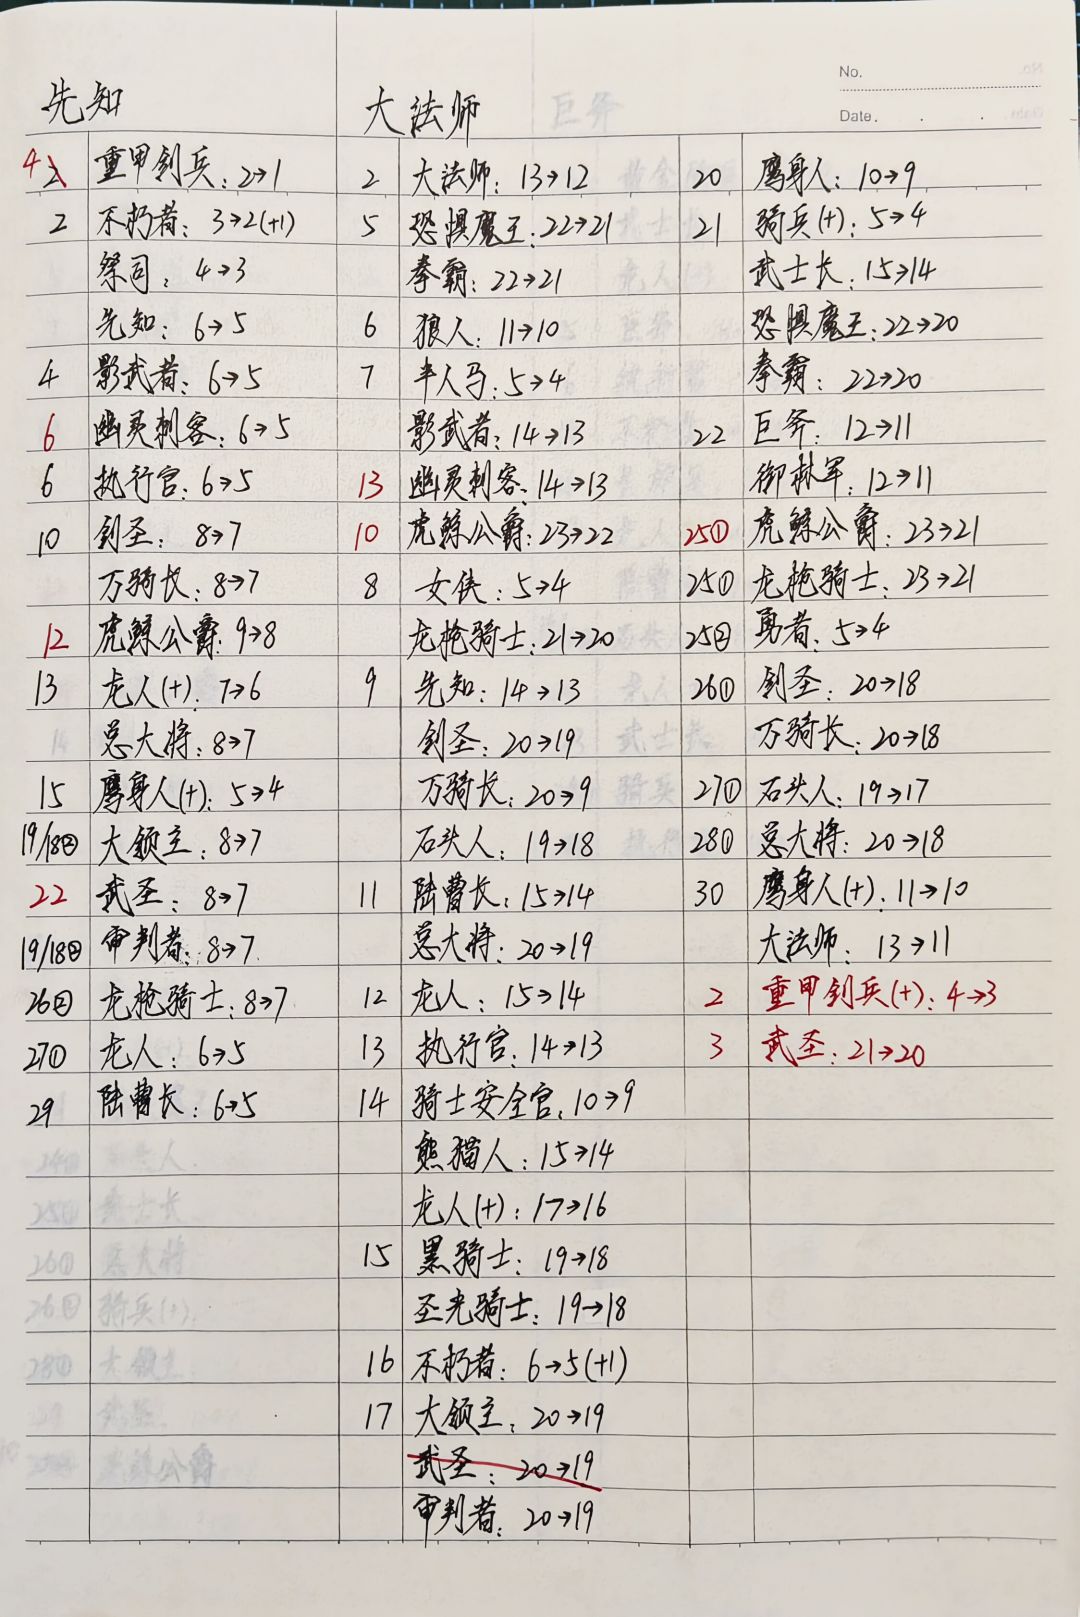 No.
Date.
先知
4 2 重甲剑兵：2→1
2 不朽者：3→2(+1)
祭司：4→3
先知：6→5
4 影武者：6→5
6 幽灵刺客：6→5
6 执行官：6→5
10 剑圣：8→7
万骑长：8→7
12 虎鲸公爵：9→8
13 龙人(+)：7→6
总大将：8→7
15 鹰身人(+)：5→4
19/18② 大领主：8→7
22 武圣：8→7
19/18② 审判者：8→7
26② 龙枪骑士：8→7
27① 龙人：6→5
29 陆曹长：6→5
大法师
2 大法师：13→12
5 恐惧魔王：22→21
拳霸：22→21
6 狼人：11→10
7 半人马：5→4
影武者：14→13
13 幽灵刺客：14→13
10 虎鲸公爵：23→22
8 女侠：5→4
龙枪骑士：21→20
9 先知：14→13
剑圣：20→19
万骑长：20→9
石头人：19→18
11 陆曹长：15→14
总大将：20→19
12 龙人：15→14
13 执行官：14→13
14 骑士安全官：10→9
熊猫人：15→14
龙人(+)：17→16
15 黑骑士：19→18
圣光骑士：19→18
16 不朽者：6→5(+1)
17 大领主：20→19
武圣：20→19
审判者：20→19
20 鹰身人：10→9
21 骑兵(+)：5→4
武士长：15→14
恐惧魔王：22→20
拳霸：22→20
22 巨斧：12→11
御林军：12→11
25① 虎鲸公爵：23→21
25① 龙枪骑士：23→21
25② 勇者：5→4
26① 剑圣：20→18
万骑长：20→18
27① 石头人：19→17
28① 总大将：20→18
30 鹰身人(+)：11→10
大法师：13→11
2 重甲剑兵(+)：4→3
3 武圣：21→20